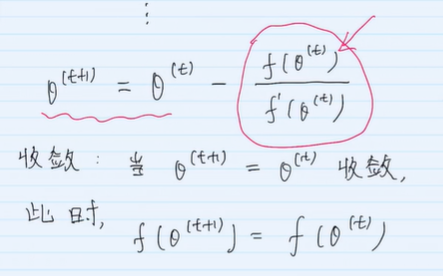 ⋮
θ^(t+1) = θ^(t) - f(θ^(t)) / f'(θ^(t))
收敛: 当 θ^(t+1) = θ^(t) 收敛,
此时, f(θ^(t+1)) = f(θ^(t))